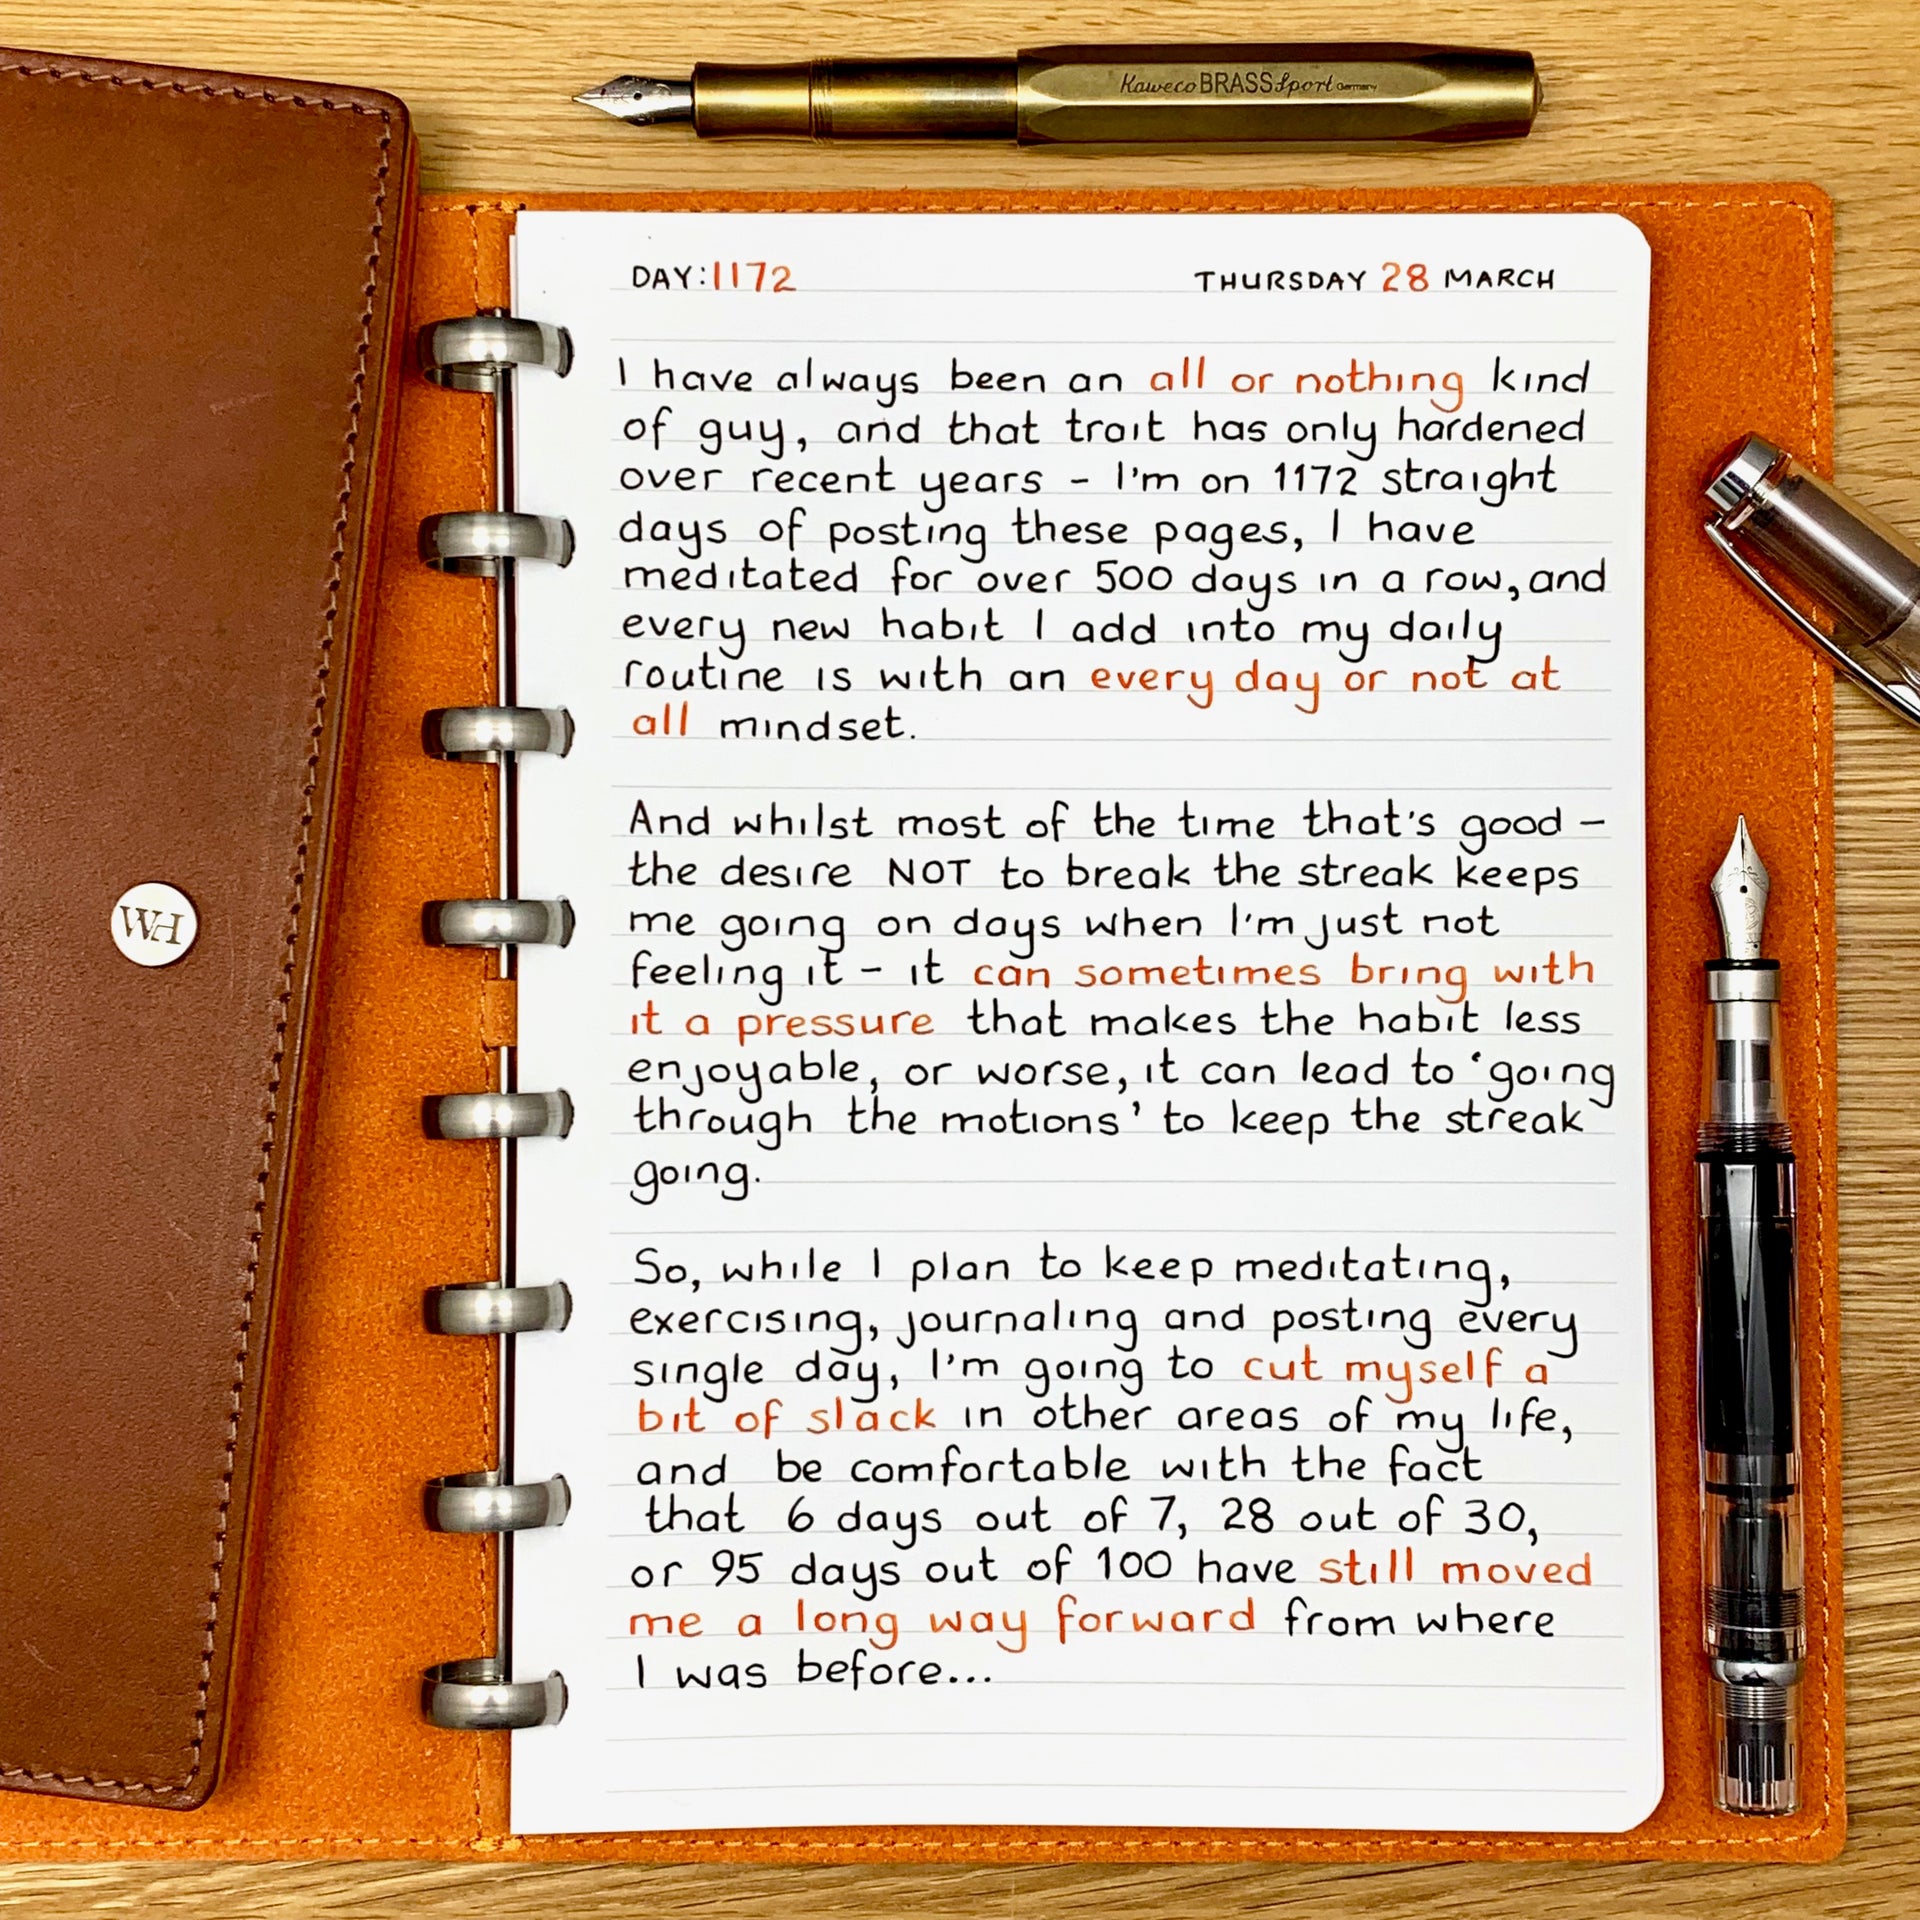 Kaweco BRASS Sport Germany
DAY: 1172 THURSDAY 28 MARCH
I have always been an all or nothing kind
of guy, and that trait has only hardened
over recent years - I'm on 1172 straight
days of posting these pages, I have
meditated for over 500 days in a row, and
every new habit I add into my daily
routine is with an every day or not at
all mindset.
And whilst most of the time that's good -
the desire NOT to break the streak keeps
me going on days when I'm just not
feeling it - it can sometimes bring with
it a pressure that makes the habit less
enjoyable, or worse, it can lead to 'going
through the motions' to keep the streak
going.
So, while I plan to keep meditating,
exercising, journaling and posting every
single day, I'm going to cut myself a
bit of slack in other areas of my life,
and be comfortable with the fact
that 6 days out of 7, 28 out of 30,
or 95 days out of 100 have still moved
me a long way forward from where
I was before...
WH